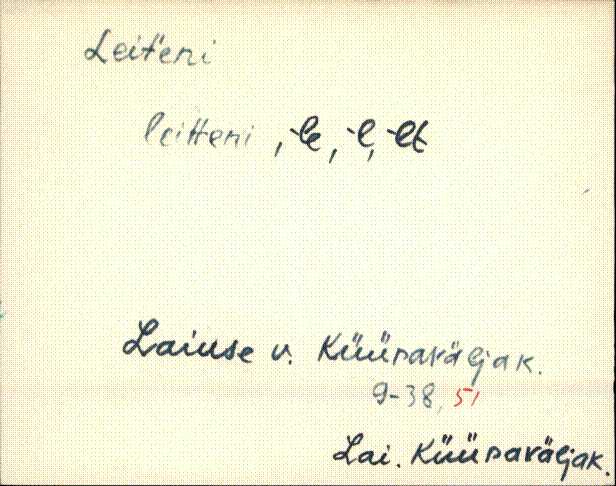 Leit'eni
leitteni, -le, -l, -lt
Laiuse v. Küünaväljak.
9-38, 51
Lai. Küünaväljak.